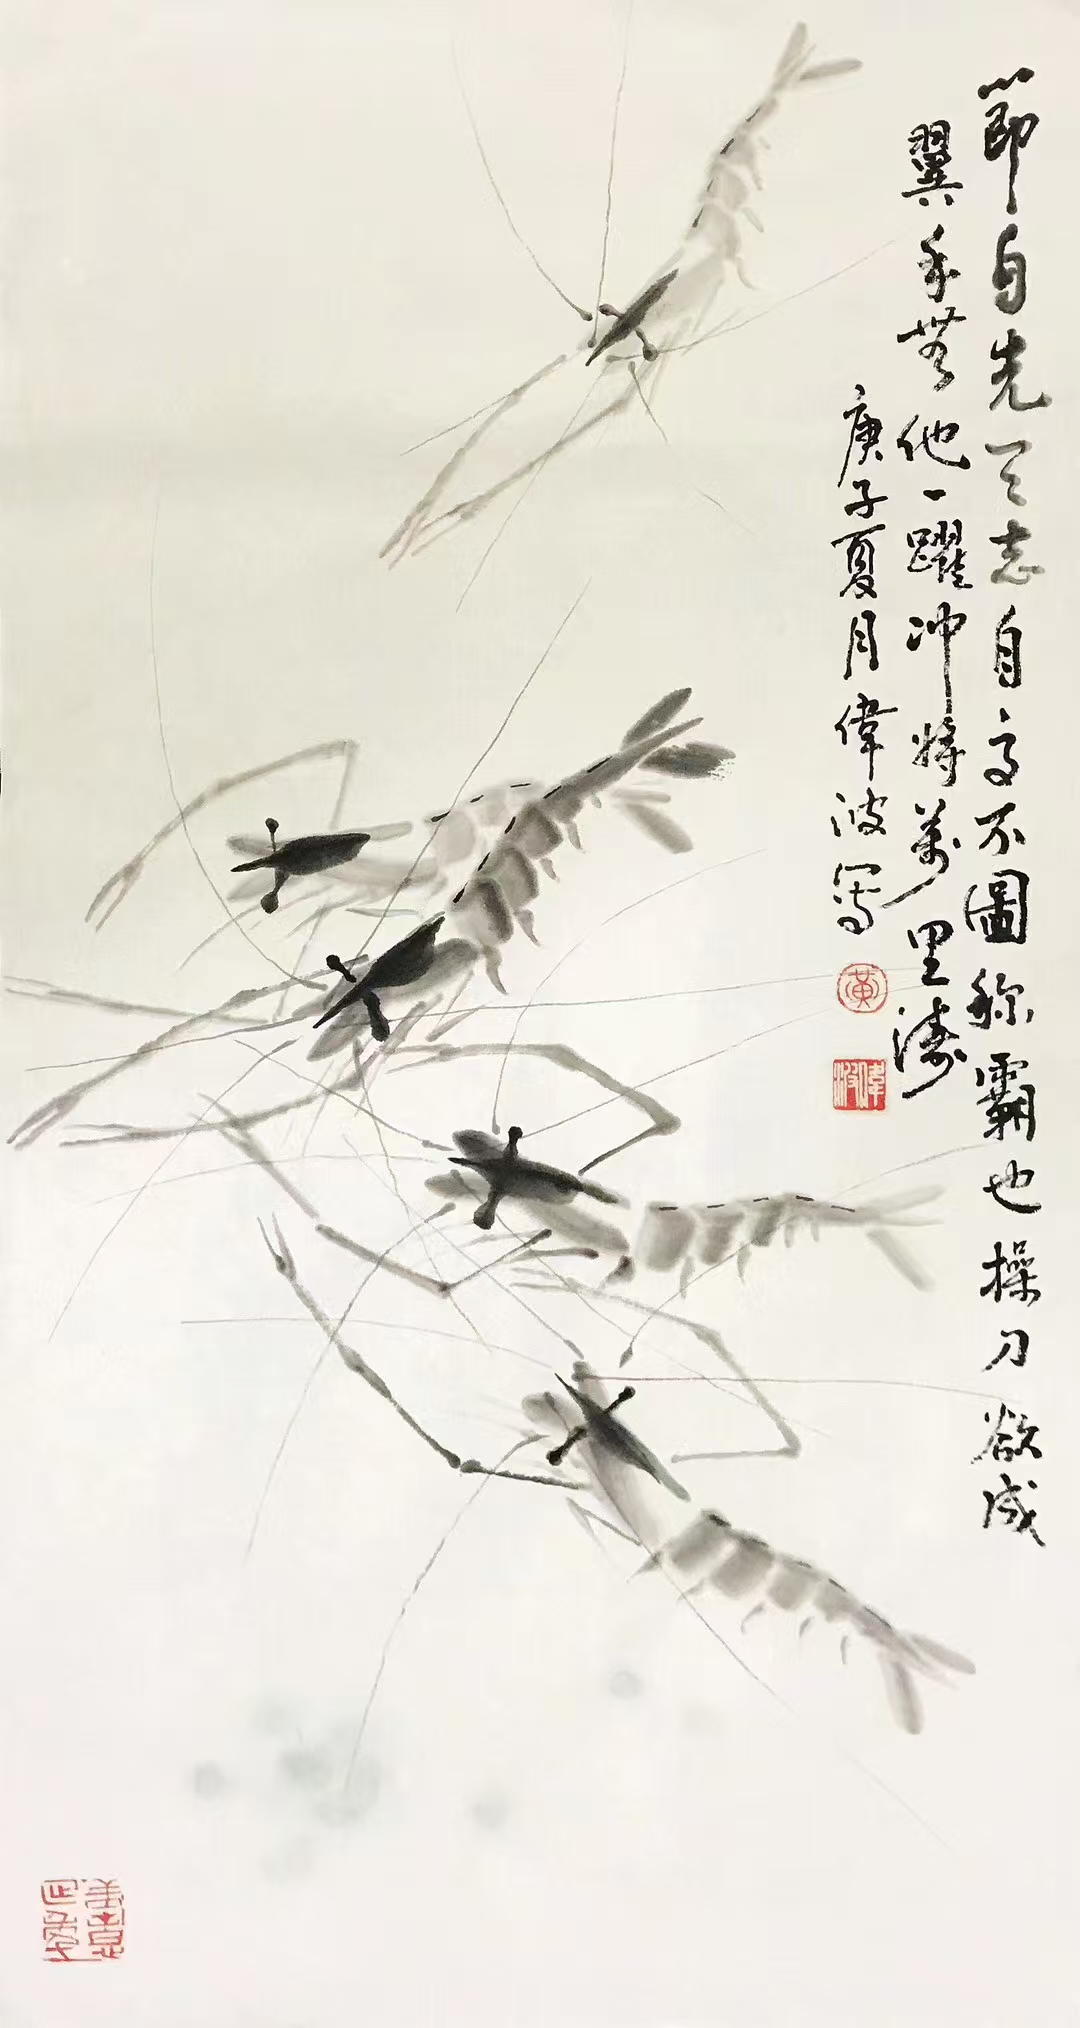 節自先天志自高不圖称霸也操刀欲成
翼手無他一躍冲將萬里濤
庚子夏月偉波寫
黃
偉波